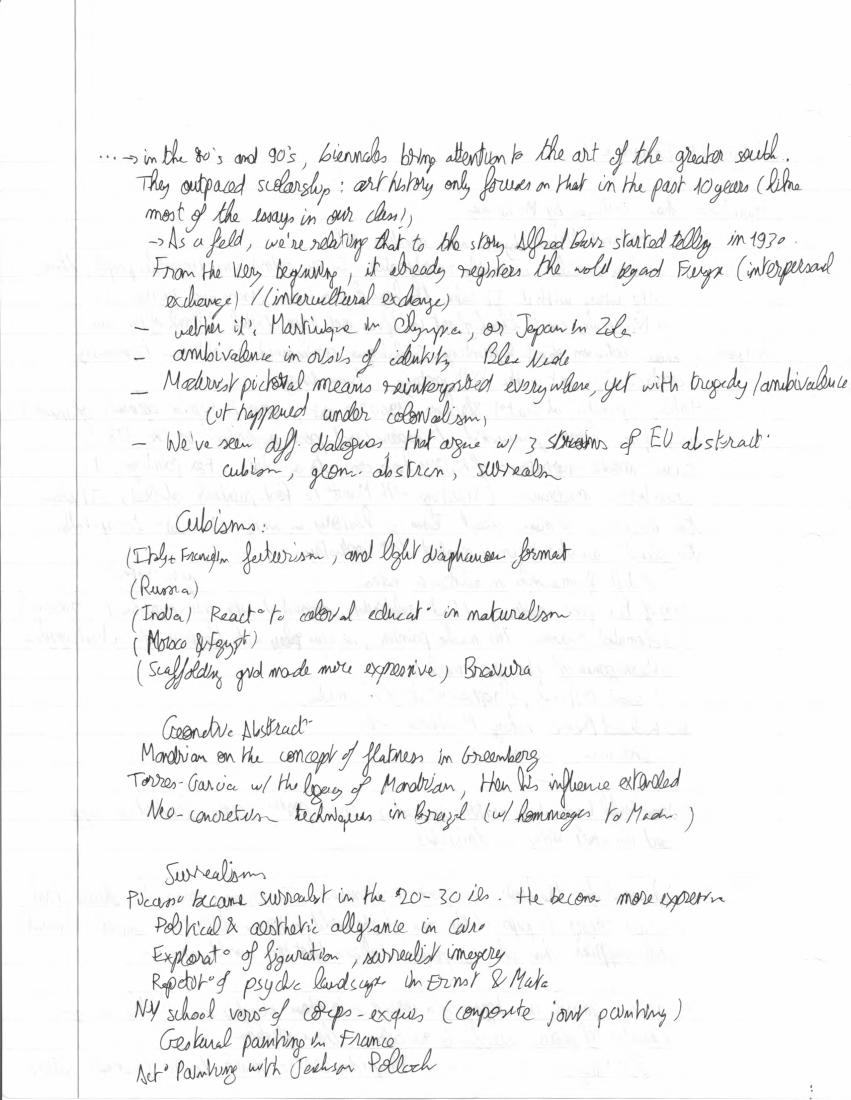 ... → in the 80's and 90's, biennales bring attention to the art of the greater south.
They outpaced scolarship : art history only focuses on that in the past 10 years (like
most of the essays in our class),
→ As a field, we're relating that to the story Alfred Barr started telling in 1930.
From the very beginning, it already registers the world beyond Europe (interpersonal
exchange) / (intercultural exchange)
- wether it's Martinique in Olympia, or Japan in Zola
- ambivalence in crisis of identity Blue Nude
- Modernist pictorial means reinterpreted everywhere, yet with tragedy / ambivalence
(it happened under colonialism,
- We've seen diff. dialogues, that argue w/ 3 streams of EU abstract°
cubism, geom. abstrcn, surrealsm
Cubisms:
(Italy + French futurism, and light diaphanous format
(Russia)
(India) React° to colonial educat° in naturalism
(Moroco & Egypt)
(Scaffolding grid made more expressive) Bravura
Geometric Abstract°
Mondrian on the concept of flatness in Greenberg
Torres-Garcia w/ the legacy of Mondrian, then his influence extended
Neo-concretism techniques in Brazil (w/ hommages to )
Surrealisms
Picasso became surrealist in the 20-30ies. He become more expressive
Political & aesthetic allegiance in Cairo
Explorat° of figuration, surrealist imagery
of psychic landscape in Ernst & Mata
NY school vers° of corps-exquis (composite joint painting)
Gestural painting in France
Act° Painting with Jackson Pollock